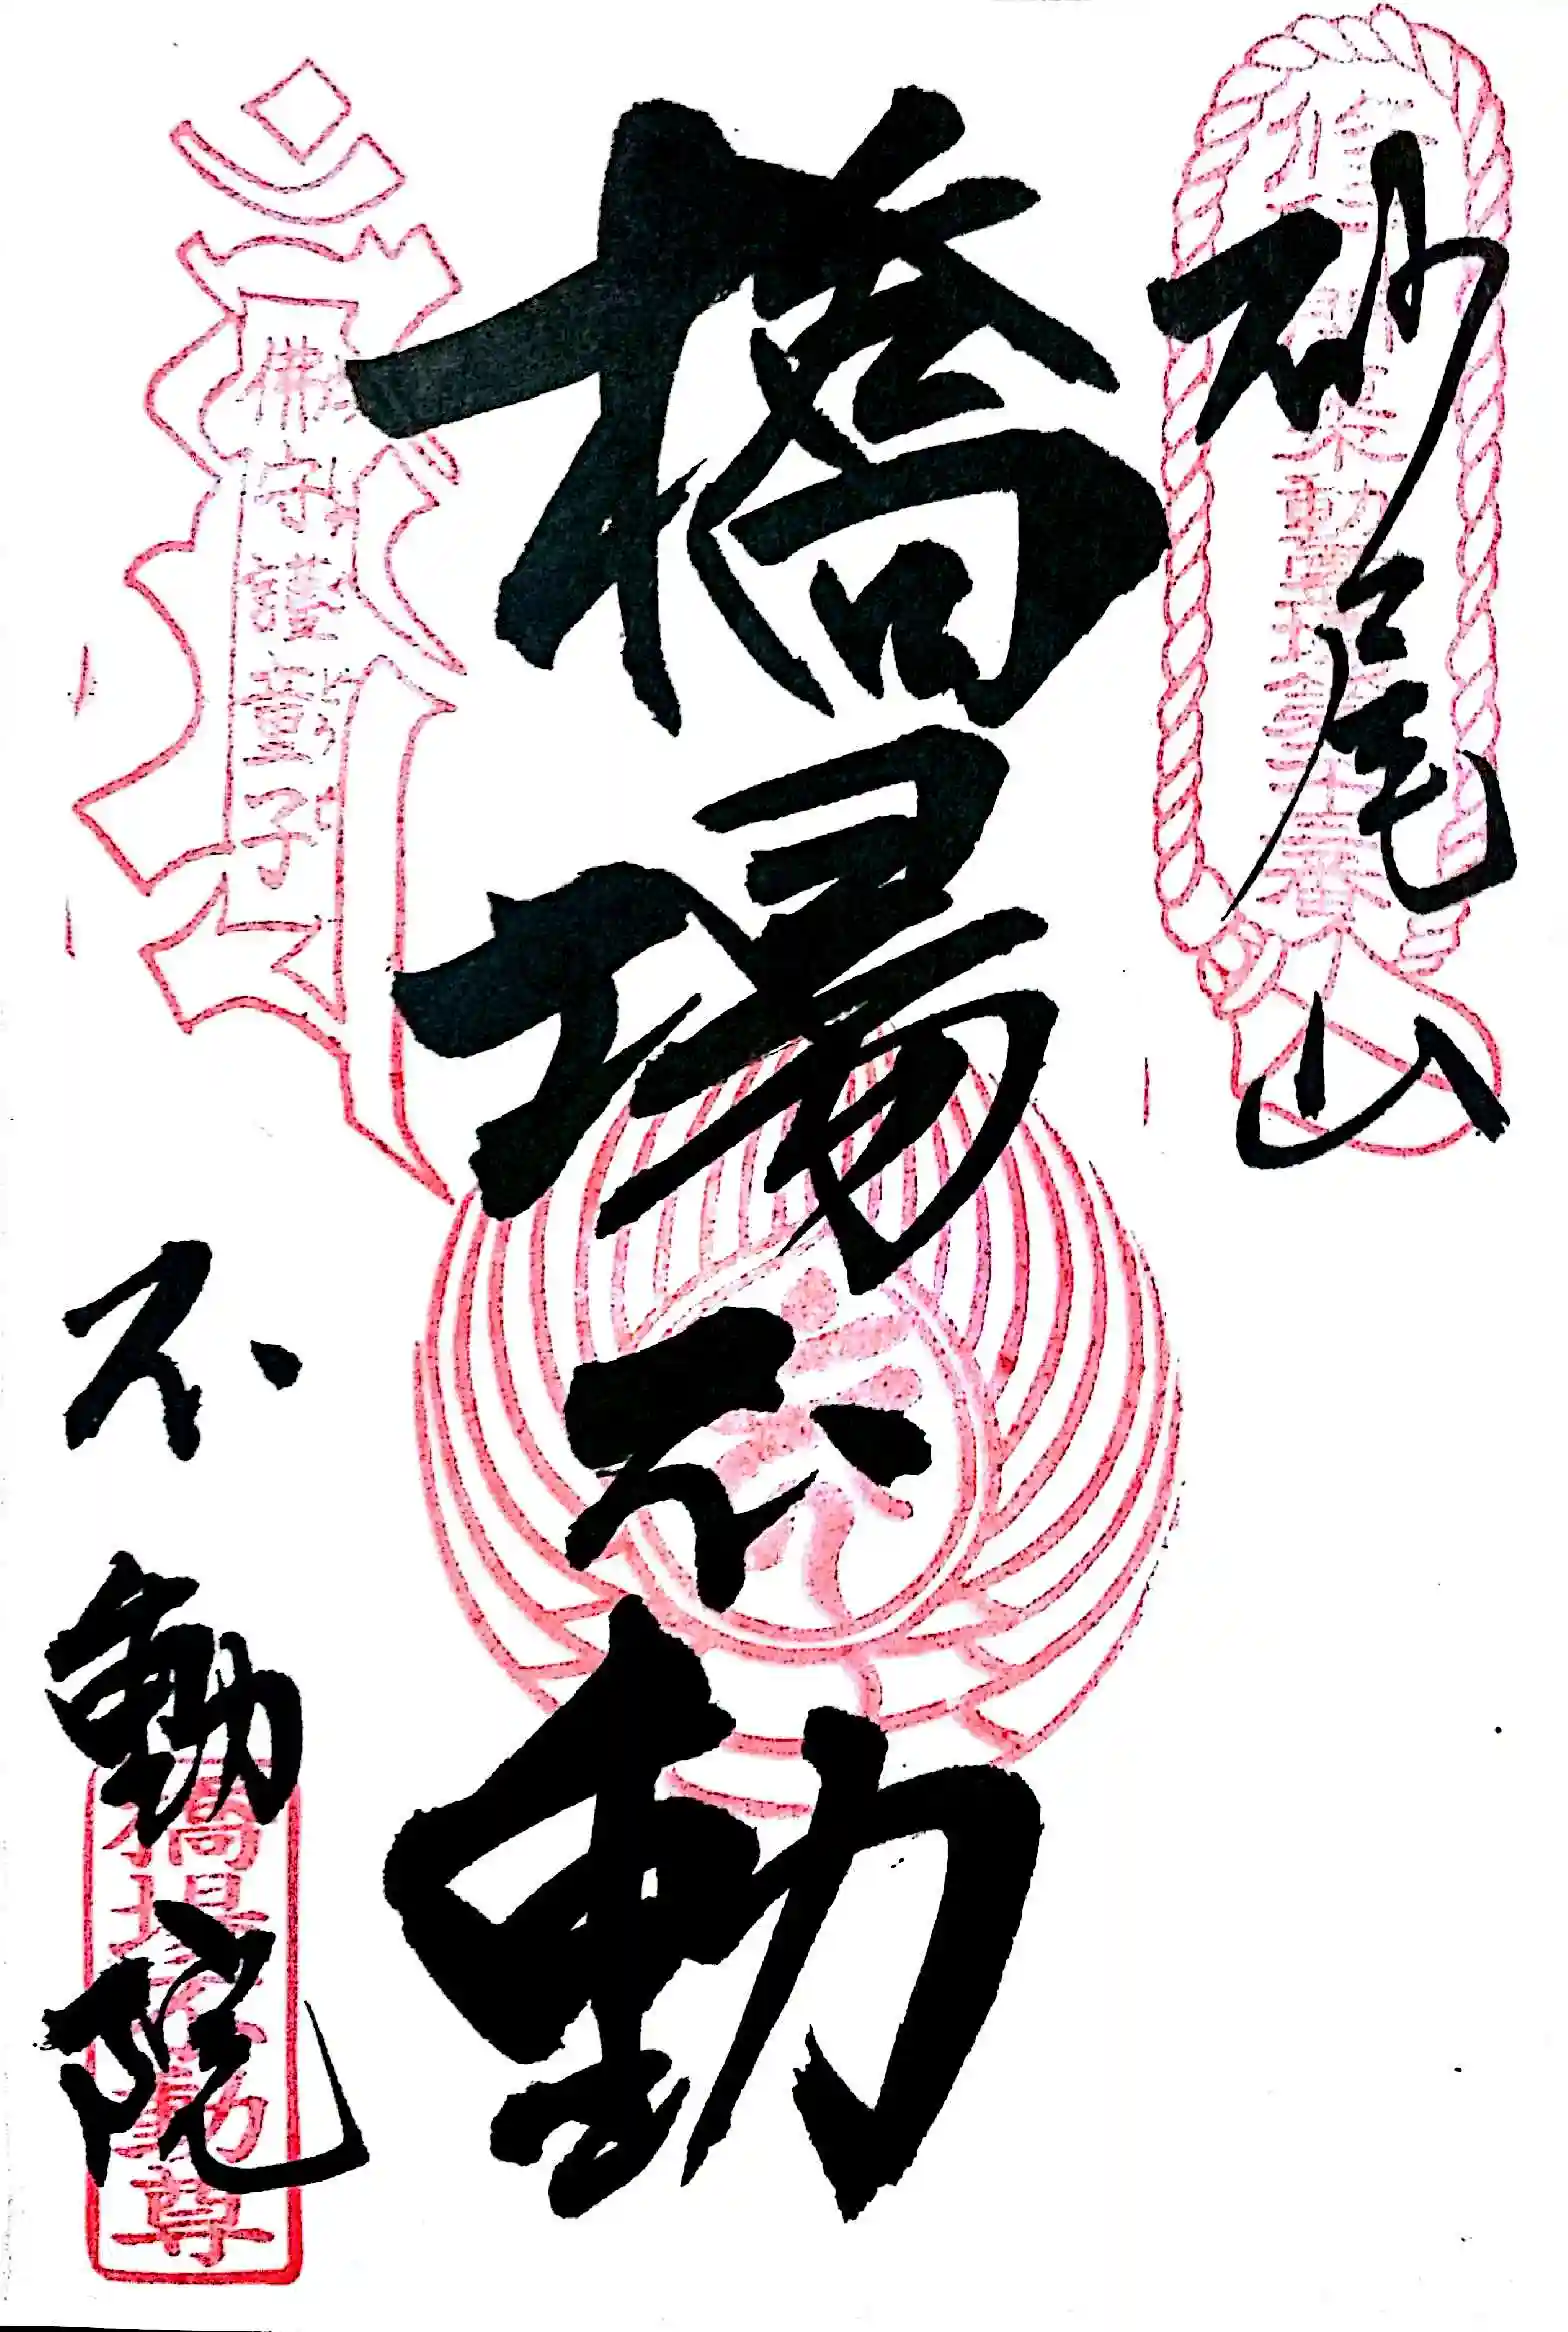 砂尾山
橋場不動
不動院
佛守護童子
橋場不動尊